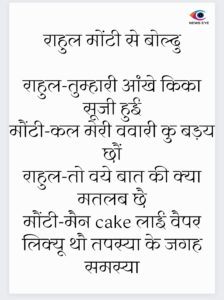 NEWS EYE
राहुल मोंटी से बोल्ढु
राहुल-तुम्हारी आंखे किका
सूजी हुईं
मौंटी-कल मेरी ववारी कु बड्य
छौं
राहुल-तो वये बात की क्या
मतलब छै
मौंटी-मैन cake लाईं वैपर
लिक्यू थौ तपस्या के जगह
समस्या